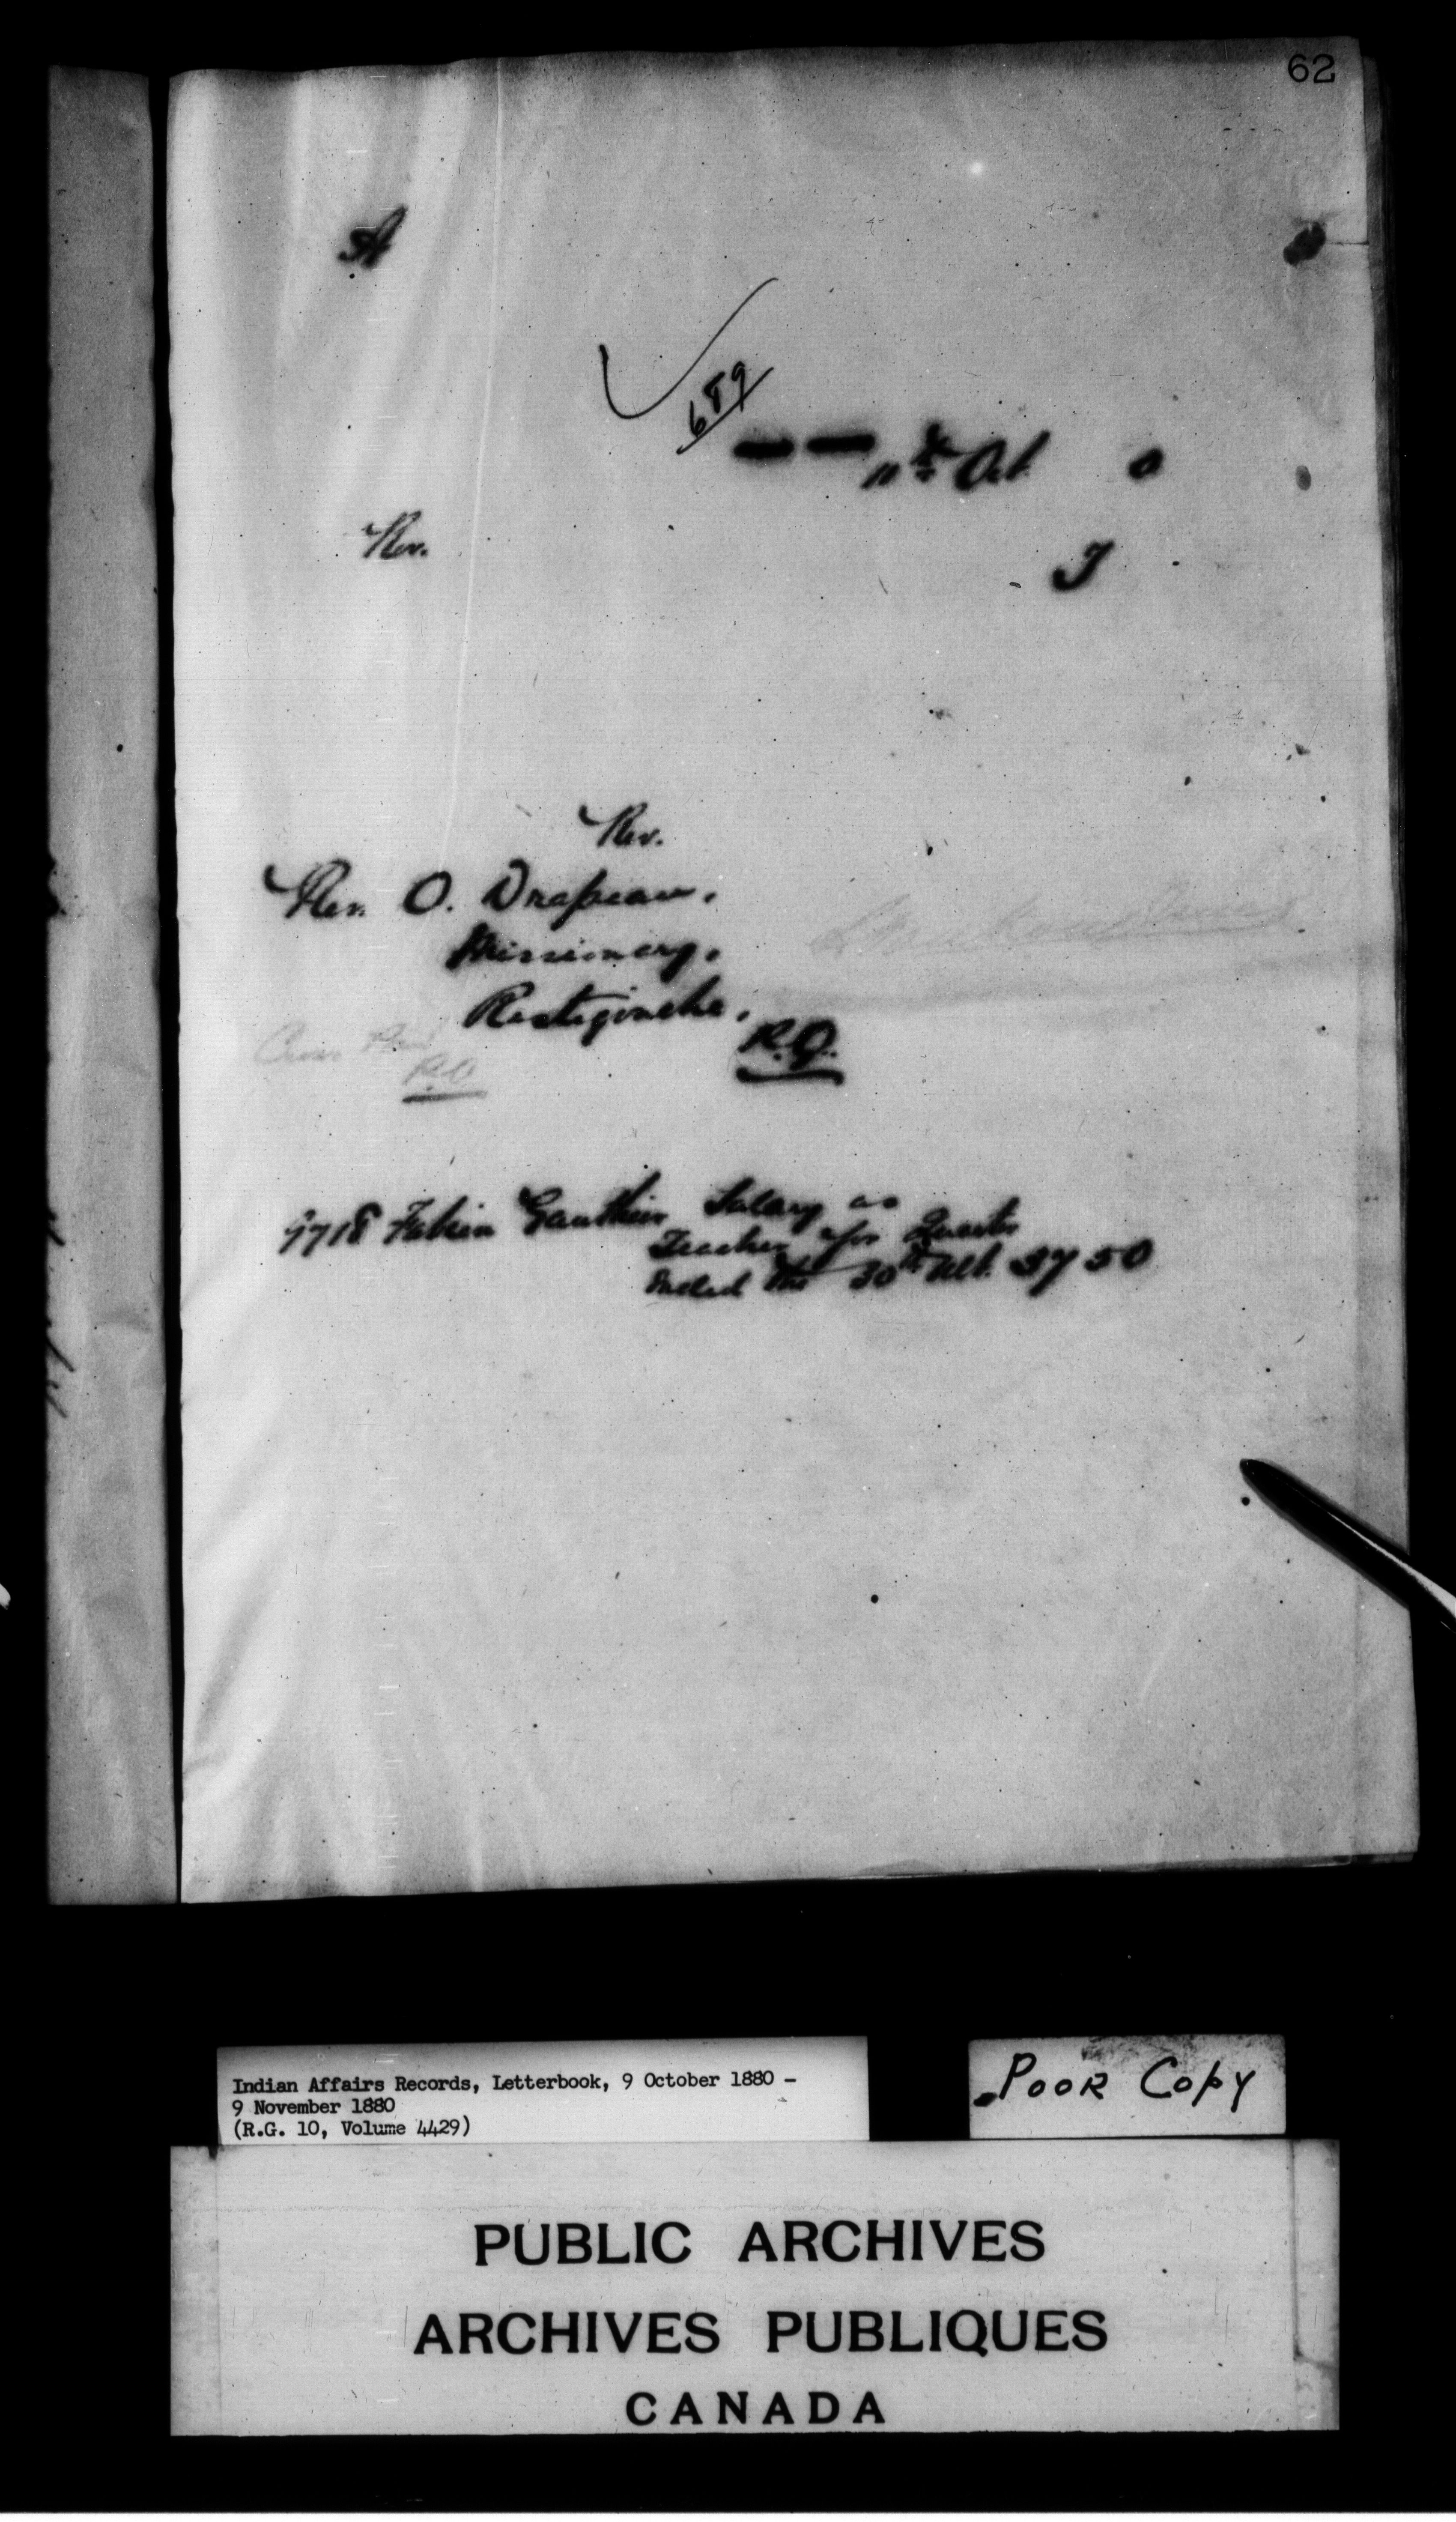 62
A
689
11th Oct. 0
Rev.
J
Rev.
Rev. O. Drapeau,
Missionary,
Restigouche,
P.Q.
P.Q.
9718 Gauthier Salary as
Teacher for Quarter
ended the 30th Ult. 37 50
Indian Affairs Records, Letterbook, 9 October 1880 -
9 November 1880
(R.G. 10, Volume 4429)
POOR COPY
PUBLIC ARCHIVES
ARCHIVES PUBLIQUES
CANADA